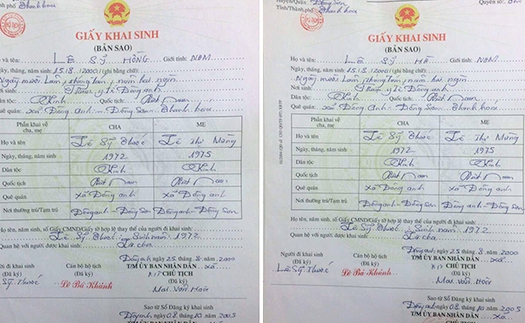 phố Thanh Hoá
GIẤY KHAI SINH
(BẢN SAO)
và tên: LÊ SỸ HỒNG Giới tính: NAM
Ngày, tháng, năm sinh: 15.8.2000 (ghi bằng chữ):
Ngày mười lăm, tháng tám, năm hai ngàn
Trạm y tế Đông anh
tộc: Kinh Quốc tịch: Việt Nam
quê: Xã Đông Anh - Đông Sơn - Thanh hoá
Phần khai về cha, mẹ CHA MẸ
Họ và tên Lê Sỹ Thuốc Lê Thị Hằng
Ngày, tháng, năm sinh 1972 1975
Dân tộc Kinh Kinh
Quốc tịch Việt Nam Việt Nam
Quê quán xã Đông anh xã Đông anh
Nơi thường trú/Tạm trú Đông anh - Đông Sơn Đông anh - Đông Sơn
tên, năm sinh, số Giấy CMND/Giấy tờ hợp lệ thay thế của người đi khai sinh
Lê Sỹ Thuốc sinh năm 1972
Quan hệ với người được khai sinh: Là cha
Đông anh ngày 25 tháng 8 năm 2000
đi khai sinh Cán bộ hộ tịch T/M ỦY BAN NHÂN DÂN xã
(Đã ký) (Đã ký) KT CHỦ TỊCH
(Đã ký)
Sỹ Thuốc Lê Bá Khánh Mai Văn Hoà
Sao từ Sổ Đăng ký khai sinh
Đông anh ngày 08 tháng 10 năm 2003
T/M ỦY BAN NHÂN DÂN
Huyện/Quận: Đông Sơn Quyển số:
Tỉnh/Thành phố: Thanh hoá
GIẤY KHAI SINH
(BẢN SAO)
Họ và tên: LÊ SỸ HÀ Giới tính: NAM
Ngày, tháng, năm sinh: 15.8.2000 (ghi bằng chữ):
Ngày mười lăm, tháng tám, năm hai ngàn
Trạm y tế Đông anh
Dân tộc: Kinh Quốc tịch: Việt Nam
Quê quán: Xã Đông Anh - Đông Sơn - Thanh hoá
Phần khai về cha, mẹ CHA MẸ
Họ và tên Lê Sỹ Thuốc Lê Thị Hằng
Ngày, tháng, năm sinh 1972 1975
Dân tộc Kinh Kinh
Quốc tịch Việt Nam Việt Nam
Quê quán xã Đông anh xã Đông anh
Nơi thường trú/Tạm trú Đông anh - Đông Sơn Đông anh - Đông Sơn
Họ tên, năm sinh, số Giấy CMND/Giấy tờ hợp lệ thay thế của người đi khai sinh
Lê Sỹ Thuốc sinh năm 1972
Quan hệ với người được khai sinh: Là cha
Đông anh ngày 25 tháng 8 năm 2000
Người đi khai sinh Cán bộ hộ tịch T/M ỦY BAN NHÂN DÂN xã
(Đã ký) (Đã ký) KT CHỦ TỊCH
(Đã ký)
Lê Sỹ Thuốc Lê Bá Khánh Mai Văn Hoà
Sao từ Sổ Đăng ký khai sinh
Đông anh ngày 08 tháng 10 năm 2003
T/M ỦY BAN NHÂN DÂN Xã